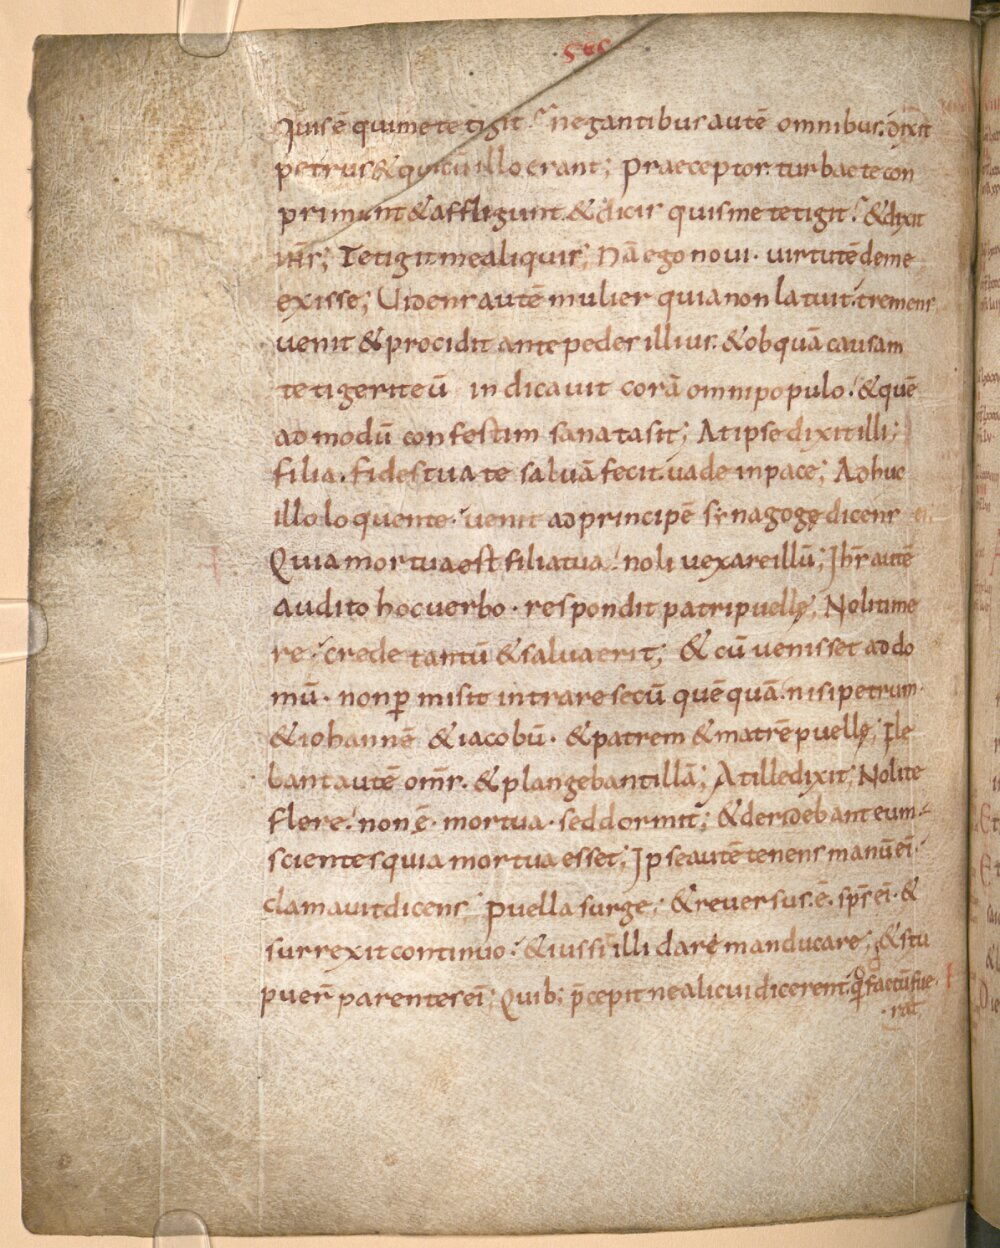 ses
Quis ē qui me tetigit? negantibus autē omnibus. dixit
petrus & qui cū illo erant; Praeceptor. turbae te con
primunt & affligunt. & dicis quis me tetigit? & dixit
ih̄s; Tetigit me aliquis; Nā ego novi. virtutē de me
exisse; Videns autē mulier quia non latuit. tremens
venit & procidit ante pedes illius. & ob quā causam
tetigerit eū indicavit corā omni populo. & quē
admodū confestim sanata sit; At ipse dixit illi;
filia. fides tua te salvā fecit. vade in pace; Adhuc
illo loquente. venit ad principē synagogę dicens ei.
Quia mortua est filia tua. noli vexare illū; Ih̄s autē
audito hoc verbo. respondit patri puellę; Noli time
re. crede tantū & salva erit; & cū venisset ad do
mū. non ꝑmisit intrare secū quēquā. nisi petrum.
& iohannē & iacobū. & patrem & matrē puellę; Fle
bant autē om̄s. & plangebant illā; At ille dixit; Nolite
flere. non ē. mortua. sed dormit; & deridebant eum.
scientes quia mortua esset; Ipse autē tenens manū ei.
clamavit dicens. puella surge; & reversus. ē. sp̄s ei. &
surrexit continuo. & iussit illi dare manducare; & stu
puer̄ parentes ei; Quib; p̄cepit ne alicui dicerent. qđ factū fue
rat.